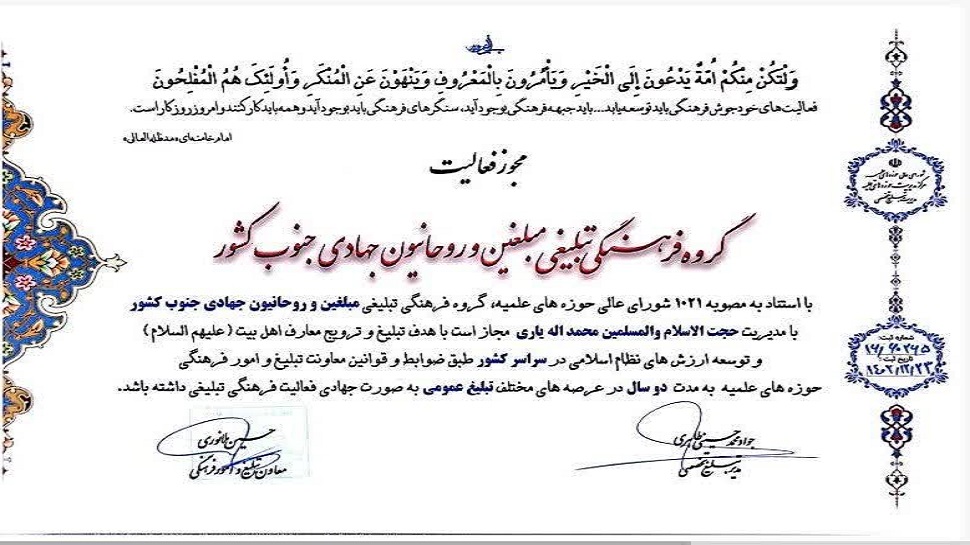 وَلْتَكُنْ مِنْكُمْ أُمَةٌ يَدْعُونَ إِلَى الْخَيْرِ وَيَأْمُرُونَ بِالْمَعْرُوفِ وَيَنْهَوْنَ عَنِ الْمُنْكَرِ وَأُولَئِكَ هُمُ الْمُفْلِحُونَ
فعالیت‌های خودجوش فرهنگی باید توسعه یابد... باید جبهه فرهنگی بوجود آید، سنگرهای فرهنگی باید بوجود آید و همه باید کار کنند و امروز روز کار است.
امام خامنه‌ای «مدظله‌العالی»
مجوز فعالیت
گروه فرهنگی تبلیغی مبلغین و روحانیون جهادی جنوب کشور
با استناد به مصوبه ۱۰۲۱ شورای عالی حوزه های علمیه، گروه فرهنگی تبلیغی مبلغین و روحانیون جهادی جنوب کشور
با مدیریت حجت الاسلام والمسلمین محمد اله یاری مجاز است با هدف تبلیغ و ترویج معارف اهل بیت (علیهم السلام)
و توسعه ارزش های نظام اسلامی در سراسر کشور طبق ضوابط و قوانین معاونت تبلیغ و امور فرهنگی
حوزه های علمیه به مدت دو سال در عرصه های مختلف تبلیغ عمومی به صورت جهادی فعالیت فرهنگی تبلیغی داشته باشد.
شماره ثبت:
تاریخ ثبت:
۱۴۰۲/۱۲/۲۳
مدیر تبلیغ تخصصی
معاون تبلیغ و امور فرهنگی